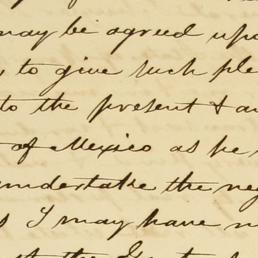 may be agreed upo
, to give such ple
to the present & a
of Mexico as he
undertake the neg
s I may have